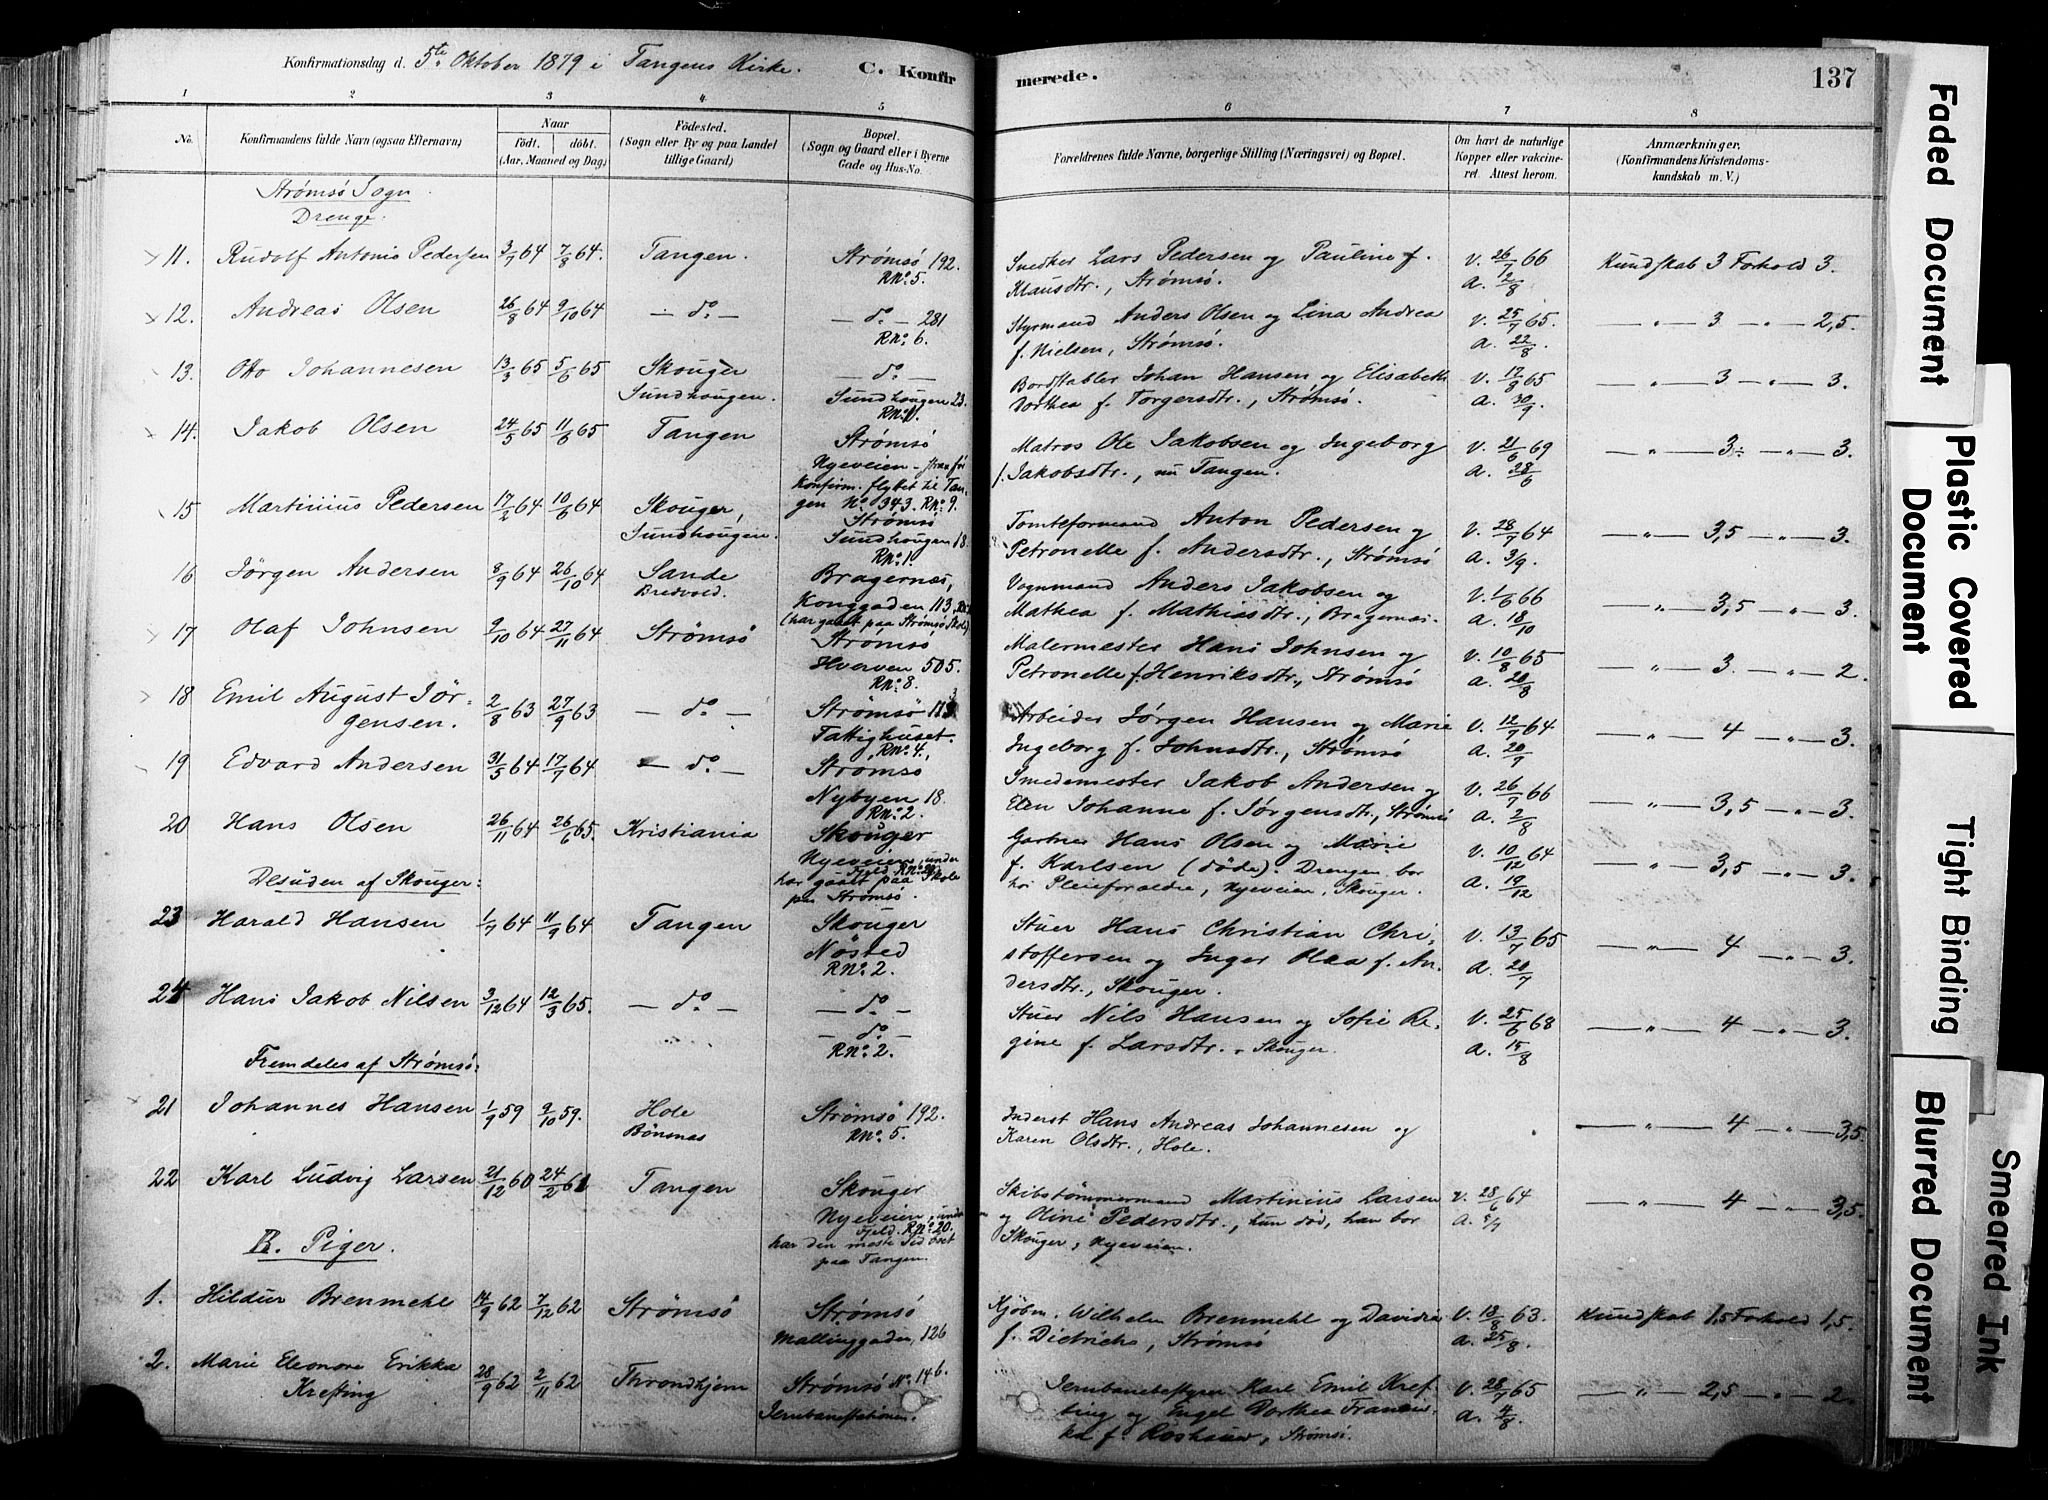 Konfirmationsdag d. 5te Oktober 1879 i Tangens Kirke. C. Konfirmerede. 137
1 2 3 4 5 6 7 8
No. Konfirmandens fulde Navn (ogsaa Efternavn) Naar födt. döbt. (Aar, Maaned og Dag) Födested. (Sogn eller By og paa Landet tillige Gaard) Bopæl. (Sogn og Gaard eller i Byerne Gade og Hus-No. Forældrenes fulde Navne, borgerlige Stilling (Næringsvei) og Bopæl. Om havt de naturlige Kopper eller vakcineret. Attest herom. Anmærkninger. (Konfirmandens Kristendomskundskab m. V.)
Strømsö Sogn.
Drenge.
11. Rudolf Antonio Pedersen 3/7 64 7/8 64. Tangen. Strømsö 192. RNo. 5. Snedker Lars Pedersen og Pauline f. Klausdtr., Strømsö. V. 26/7 66 a. 2/8 Kundskab 3 Forhold 3.
12. Andreas Olsen 26/8 64 9/10 64 — do. — — do. — 281 RNo. 6. Styrmand Anders Olsen og Lina Andrea f. Nielsen, Strømsö. V. 25/7 65. a. 22/8 — " — 3 — " — 2,5.
13. Otto Johannesen 13/3 65 5/6 65 Skouger Sundhougen. — do. — Sundhougen 23. RNo. 11. Bordstabler Johan Hansen og Elisabeth Dorthea f. Torgersdtr., Strømsö. V. 12/8 65 a. 30/9. — " — 3 — " — 3.
14. Jakob Olsen 24/5 65 11/6 65 Tangen Strømsö Nyeveien - strax før Konfirm. flyttet til Tangen No. 343. RNo. 9. Matros Ole Jakobsen og Ingeborg f. Jakobsdtr., nu Tangen. V. 21/6 69 a. 28/6 — " — 3÷ — " — 3.
15 Martinius Pedersen 17/2 64 10/6 64 Skouger, Sundhougen. Strømsö Sundhougen 18. RNo. 1. Tomteformand Anton Pedersen og Petronelle f. Andersdtr., Strømsö V. 28/7 64 a. 3/9. — " — 3,5 — " — 3.
16 Jörgen Andersen 8/9 64 26/10 64 Sande Bredvold. Bragernæs, Konggaden 113, (har gaaet paa Strømsö Skole) Vognmand Anders Jakobsen og Mathea f. Mathiasdtr., Bragernæs. V. 1/6 66 a. 18/10 — " — 3,5 — " — 3.
17 Olaf Johnsen 9/10 64 27/11 64 Strömsö Strømsö Hverven 505. RNo. 8. Malermester Hans Johnsen og Petronelle f. Henriksdtr., Strømsö V. 10/8 65 a. 20/8 — " — 3. — " — 2.
18 Emil August Jörgensen. 2/8 63 27/9 63 — do. — Strømsö Fattighuset. RNo. 4. Arbeider Jörgen Hansen og Marie Ingeborg f. Johnsdtr., Strømsö V. 12/7 64 a. 20/7 — " — 4 — " — 3.
19 Edvard Andersen 31/5 64 17/7 64 — do. — Strømsö Nybyen 18. RNo. 2. Smedemester Jakob Andersen og Elen Johanne f. Jörgensdtr., Strømsö V. 26/7 66 a. 2/8 — " — 3,5 — " — 3.
20 Hans Olsen 26/11 64 26/6 65. Kristiania Skouger Nyeveien, under Fjeld. RNo. 20 har gaaet paa Skole paa Strømsö. Gartner Hans Olsen og Marie f. Karlsen (döde). Drengen bor hos Pleieforældre, Nyeveien, Skouger. V. 10/12 64 a. 19/12 — " — 3,5 — " — 3.
Desuden af Skouger:
23 Harald Hansen 1/7 64 11/9 64 Tangen Skouger Nösted RNo. 2. Stuer Hans Christian Christoffersen og Inger Olaa f. Andersdtr., Skouger. V. 13/7 65 a. 20/7 — " — 4 — " — 3.
24 Hans Jakob Nilsen 3/12 64 12/3 65. — do. — — do. — — do. — RNo. 2. Stuer Nils Hansen og Sofie Regine f. Larsdtr., Skouger. V. 25/6 68 a. 15/8 — " — 4 — " — 3.
Fremdeles af Strømsö:
21 Johannes Hansen 1/9 59 9/10 59. Hole Bönsnæs Strømsö 192. RNo. 5. Inderst Hans Andreas Johannesen og Karen Olsdtr., Hole. — " — 4 — " — 3,5.
22 Karl Ludvig Larsen 21/12 60 24/2 61 Tangen Skouger Nyeveien, under Fjeld. RNo. 20. har den meste Tid vöxet paa Tangen. Skibstømmermand Martinius Larsen og Oline Pedersdtr., hun död, han bor Skouger, Nyeveien. V. 28/6 64 — " — 4 — " — 3,5.
B. Piger.
1. Hildur Brenmehl 14/9 62 7/12 62 Strömsö Strømsö Mallinggaden, 126 Kjöbm. Wilhelm Brenmehl og Davidia f. Dietrichs, Strømsö V. 18/8 63. a. 25/8. Kundskab 1,5 Forhold 1,5.
2. Marie Eleonore Erikka Krefting 28/9 62 2/11 62 Throndhjem Strømsö No. 146. Jernbanestationen. Jernbanebestyrer Karl Emil Krefting og Engel Dorthea Franciska f. Roshauw, Strømsö. V. 28/7 65 a. 4/8. — " — 2,5 — " — 2.
Faded Document
Plastic Covered Document
Tight Binding
Blurred Document
Smeared Ink